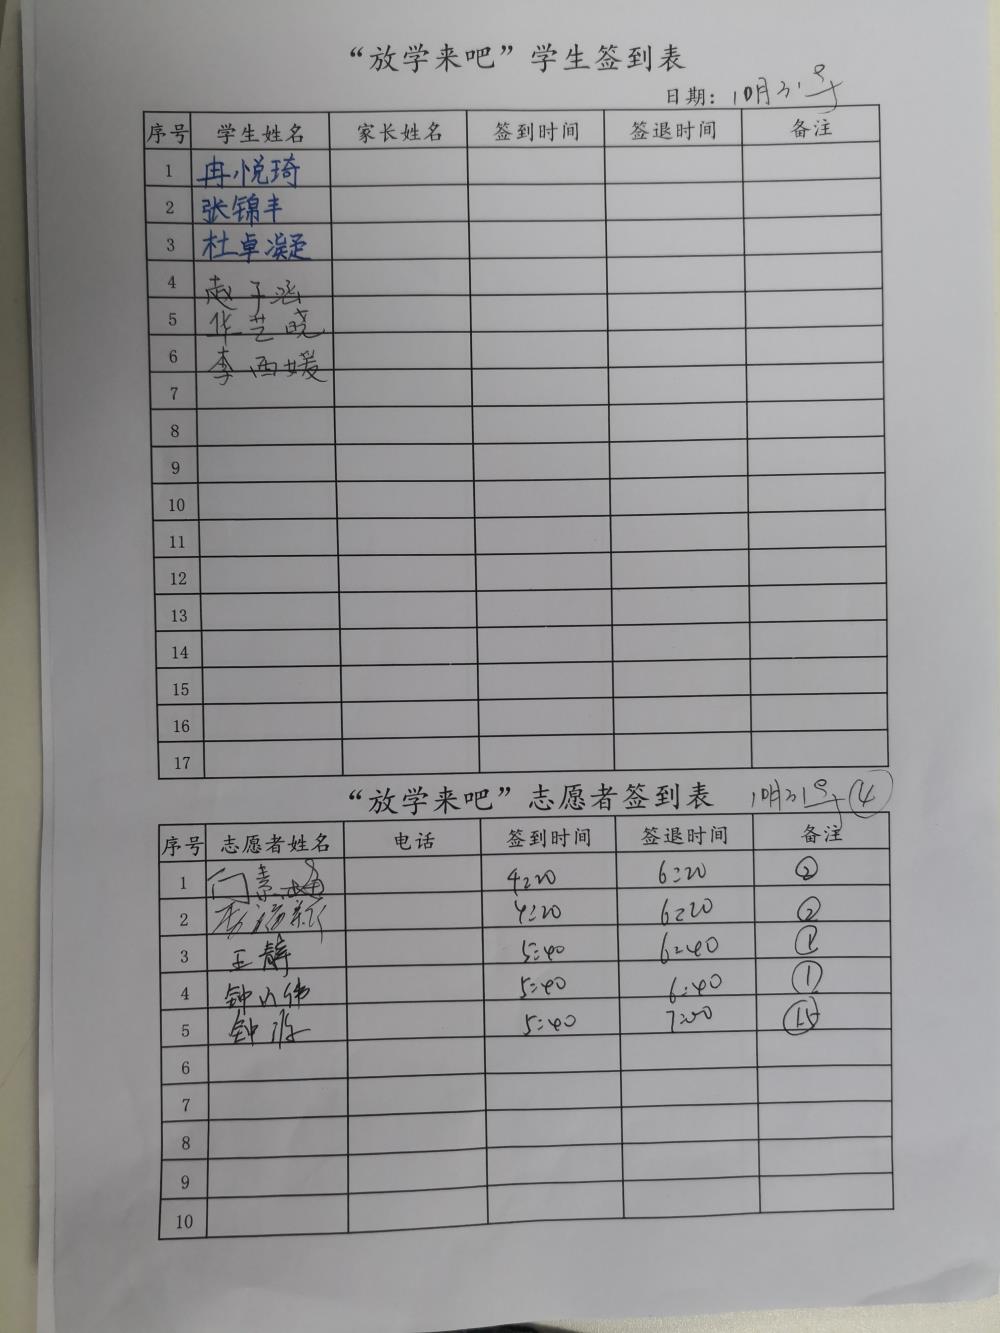 “放学来吧”学生签到表
日期: 10月31号
序号 学生姓名 家长姓名 签到时间 签退时间 备注
1 冉悦琦
2 张锦丰
3 杜卓凝
4 赵子涵
5 华艺晓
6 李西媛
7
8
9
10
11
12
13
14
15
16
17
“放学来吧”志愿者签到表 10月31号 ④
序号 志愿者姓名 电话 签到时间 签退时间 备注
1 闫素 4:20 6:20 ②
2 4:20 6:20 ②
3 王静 5:40 6:40 ①
4 钟 伟 5:40 6:40 ①
5 钟 5:40 7:00 1.5
6
7
8
9
10